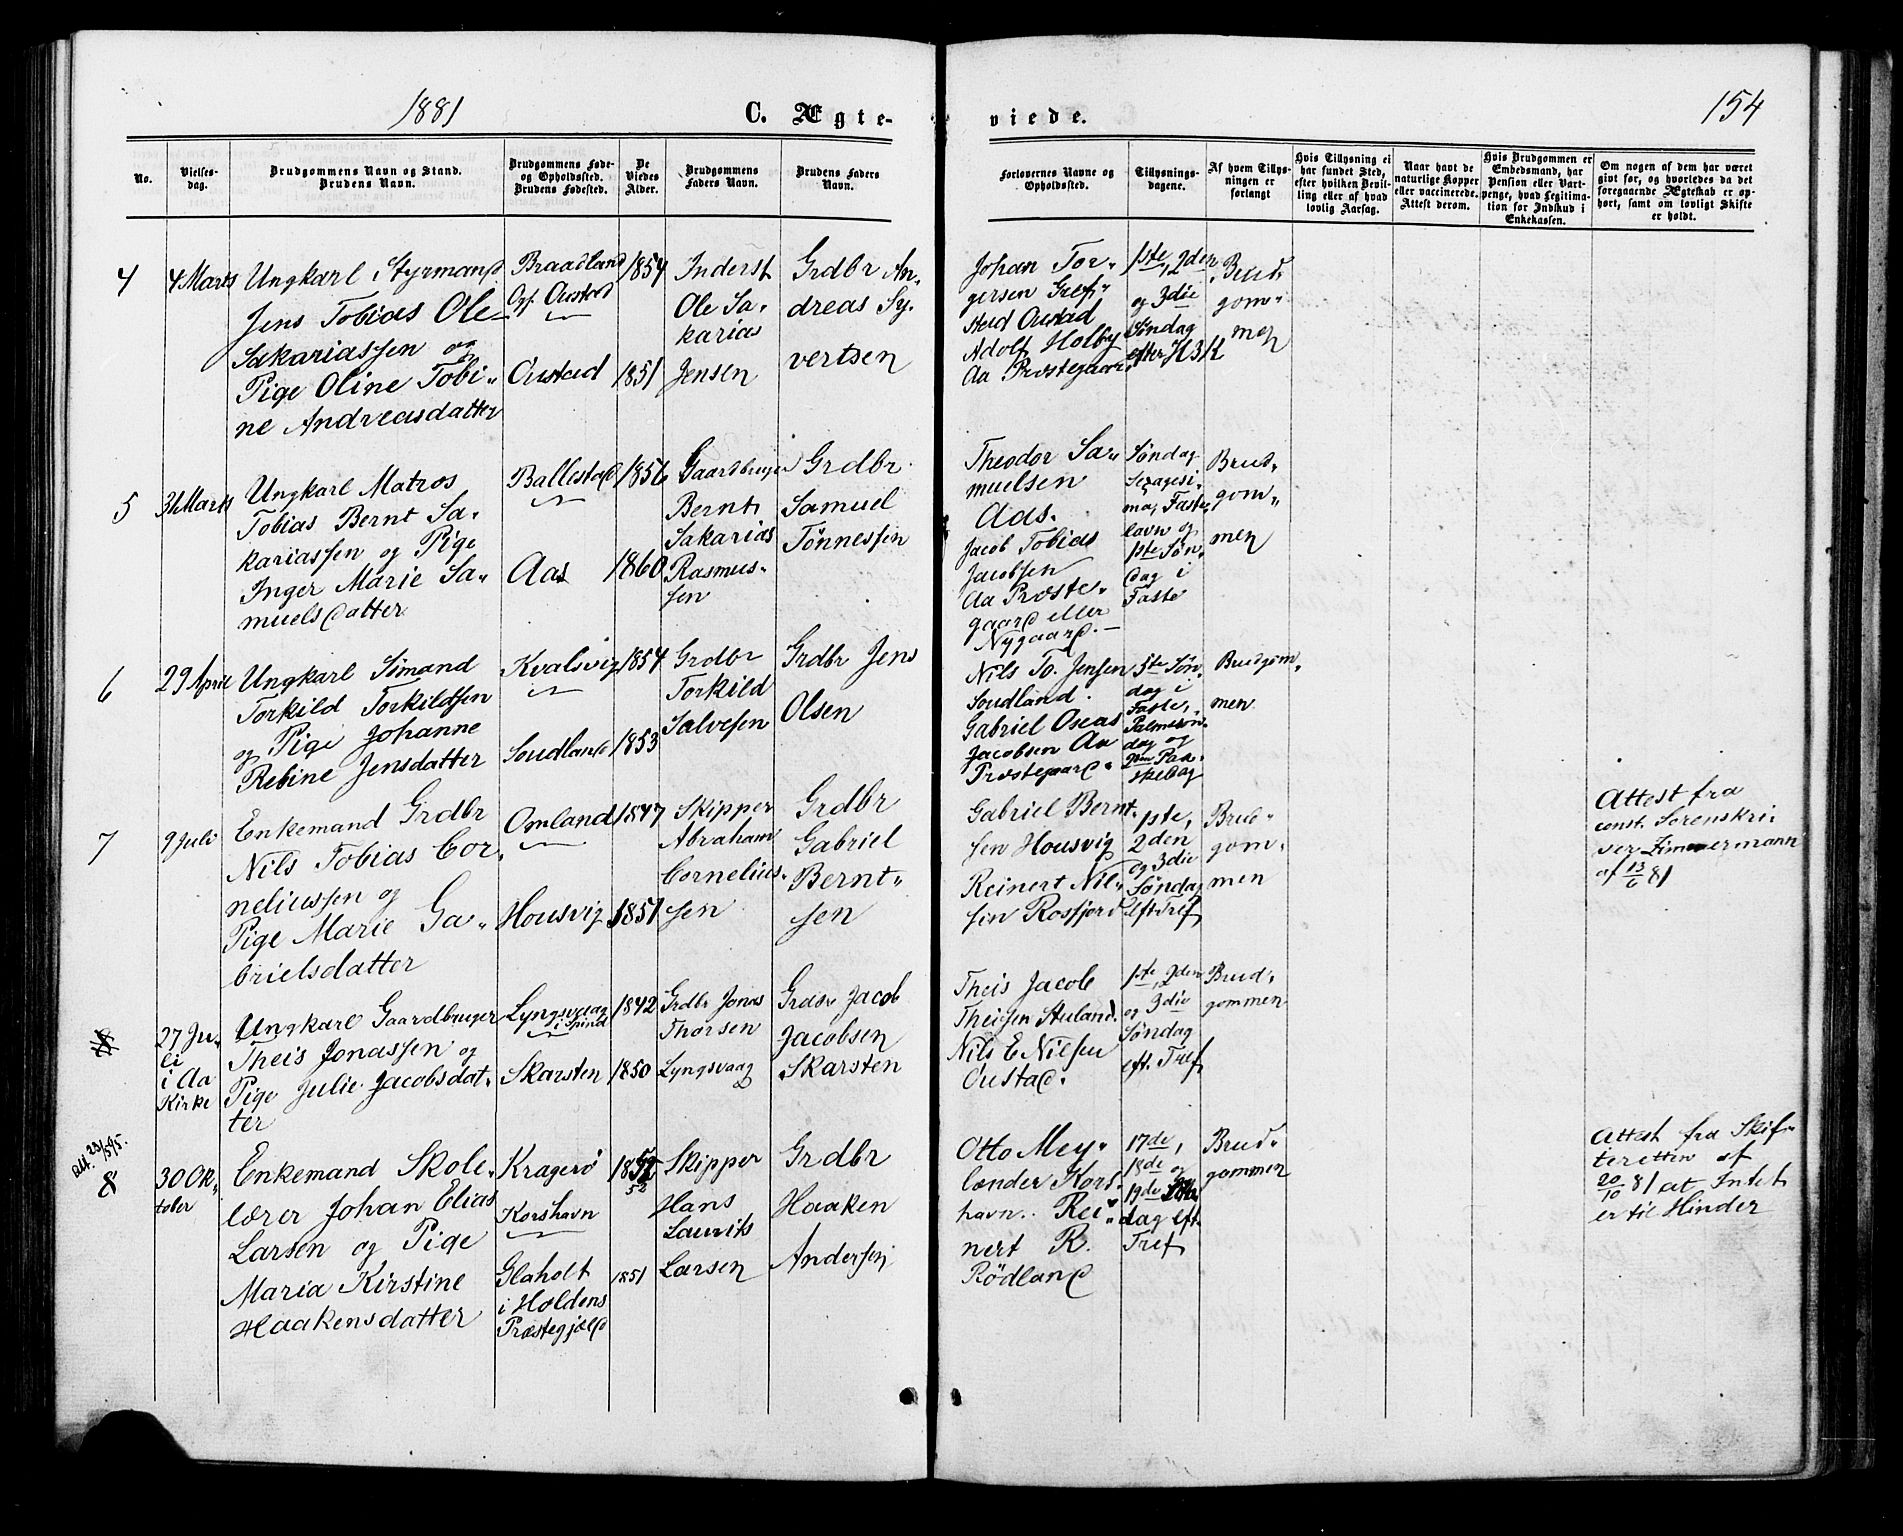 1881
C. Ægte-
viede.
154
No.
Vielses-
dag.
Brudgommens Navn og Stand.
Brudens Navn.
Brudgommens Føde-
og Opholdssted.
Brudens Fødested.
De
Viedes
Alder.
Brudgommens
Faders Navn.
Brudens Faders
Navn.
Forlovernes Navne og
Opholdssted.
Tillysnings-
dagene.
Af hvem Tillys-
ningen er
forlangt
Hvis Tillysning ei
har fundet Sted,
efter hvilken Bevil-
ling eller af hvad
lovlig Aarsag.
Naar havt de
naturlige Kopper
eller vaccinerede.
Attest derom.
Hvis Brudgommen er
Embedsmand, har
Pension eller Vart-
penge, hvad Legitima-
tion for Indskud i
Enkekassen.
Om nogen af dem har været
gift før, og hvorledes da det
foregaaende Ægteskab er op-
hørt, samt om lovligt Skifte
er holdt.
4
4 Marts
Ungkarl Styrmand
Jens Tobias Ole
Sakariassen og
Pige Oline Tobi-
ne Andreasdatter
Braadland
Opf. Oustad
Oustad
1854
1851
Inderst
Ole Sa-
karias
Jensen
Grdbr An-
dreas Sy-
vertsen
Johan Tor-
gersen Gref-
sted Oustad
Adolf Holby
Aa Præstegaard
1ste, 2den
og 3die
Søndag
efter H3K
Brud-
gom-
men
5
31 Marts
Ungkarl Matros
Tobias Bernt Sa-
kariassen og Pige
Inger Marie Sa-
muelsdatter
Ballestad
Aas
1856
1860
Gaardbruger
Bernt
Sakarias
Rasmus-
sen
Grdbr
Samuel
Tønnessen
Theodor Sa-
muelsen
Aas.
Jacob Tobias
Jacobsen
Aa Præste-
gaard eller
Nygaard.
Søndag
Sexagesi-
ma, Faste-
lavn og
1ste Søn-
dag i
Faste
Brud-
gom-
men
6
29 April
Ungkarl Sømand
Torkild Torkildsen
og Pige Johanne
Rebine Jensdatter
Kvalsvig
Soudland
1854
1853
Grdbr
Torkild
Salvesen
Grdbr Jens
Olsen
Nils To. Jensen
Soudland.
Gabriel Oseas
Jacobsen Aa
Præstegaard.
5te Søn-
dag i
Faste,
Palmesøn-
dag og
2den Paa-
skedag
Brudgom-
men
7
9 Juli
Enkemand Grdbr
Nils Tobias Cor-
neliussen og
Pige Marie Ga-
brielsdatter
Omland
Housvig
1847
1851
Skipper
Abraham
Cornelius-
sen
Grdbr
Gabriel
Bernt-
sen
Gabriel Bernt-
sen Housvig
Reinert Nil-
sen Rosfjord
1ste,
2den
og 3die
Søndag
eft Tref
Brud-
gom-
men
Attest fra
const. Sorenskri-
ver Zimmermann
af 13/6 81
27 Ju-
li
i Aa
Kirke
Ungkarl Gaardbruger
Theis Jonassen og
Pige Julie Jacobsdat-
ter
Lyngsvaag
i Spind
Skarsten
1842
1850
Grdbr Jonas
Thorsen
Lyngsvaag
Grdbr Jacob
Jacobsen
Skarsten
Theis Jacob
Theisen Auland.
Nils E Nilsen
Oustad.
1ste, 2den
og 3die
Søndag
eft. Tref
Brud-
gommen
Att. 23/5 95.
8
30 Ok-
tober
Enkemand Skole-
lærer Johan Elias
Larsen og Pige
Maria Kirstine
Haakensdatter
Kragerø
Korshavn
Glaholt
i Holdens
Præstegjeld
1852
52
1851
Skipper
Hans
Laurits
Larsen
Grdbr
Haaken
Andersen
Otto Mey-
lænder Kors-
havn. Rei-
nert R.
Rödland
17de,
18de og
19de Søn-
dag eft
Tref
Brud-
gommen
Attest fra Skif-
teretten af
20/10 81 at Intet
er til Hinder